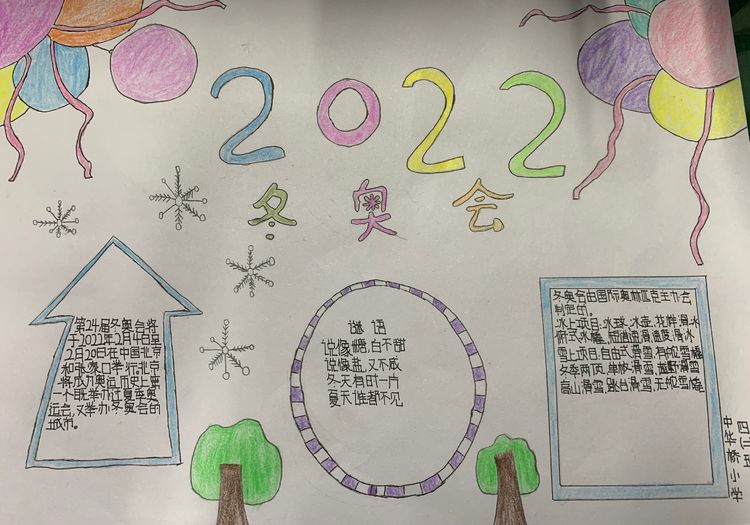 2022
冬奥会
第24届冬奥会将
于2022年2月4日至
2月20日在中国北京
和张家口举行北京
将成为奥运历史上第
一个既举办过夏季奥
运会,又举办冬奥会的
城市。
谜语
说像糖,白不甜
说像盐,又不咸
冬天有时一片
夏天谁都不见
冬奥会由国际奥林匹克主办会
制定的。
冰上项目:冰球,冰壶,花样滑冰
雪上项目,自由式滑雪
冬季两项,单板滑雪,越野滑雪
高山滑雪,跳台滑雪
四(二)班
中华桥小学